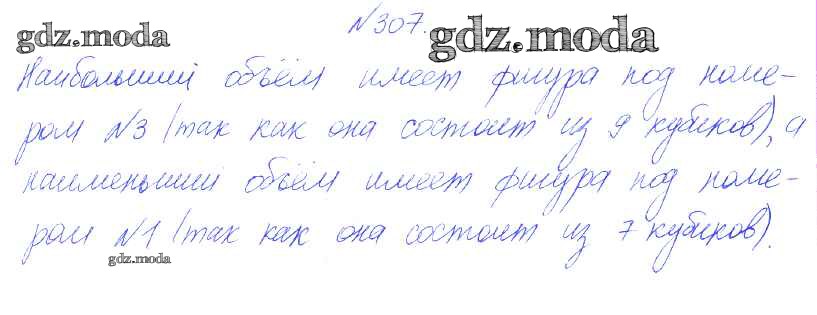 №307.
gdz.moda gdz.moda
Наибольший объём имеет фигура под номе-
ром №3 (так как она состоит из 9 кубиков), а
наименьший объём имеет фигура под номе-
ром №1 (так как она состоит из 7 кубиков).
gdz.moda